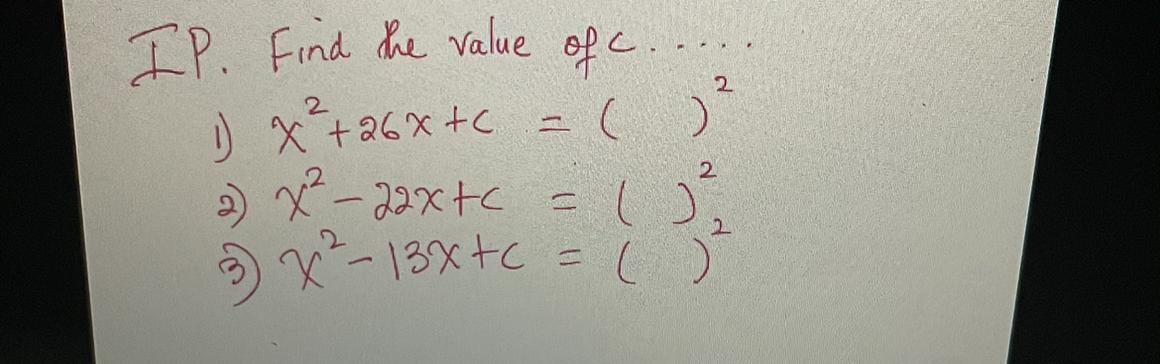 IP. Find the value of c.....
1) x²+26x+c = ( )²
2) x²-22x+c = ( )²
3) x²-13x+c = ( )²